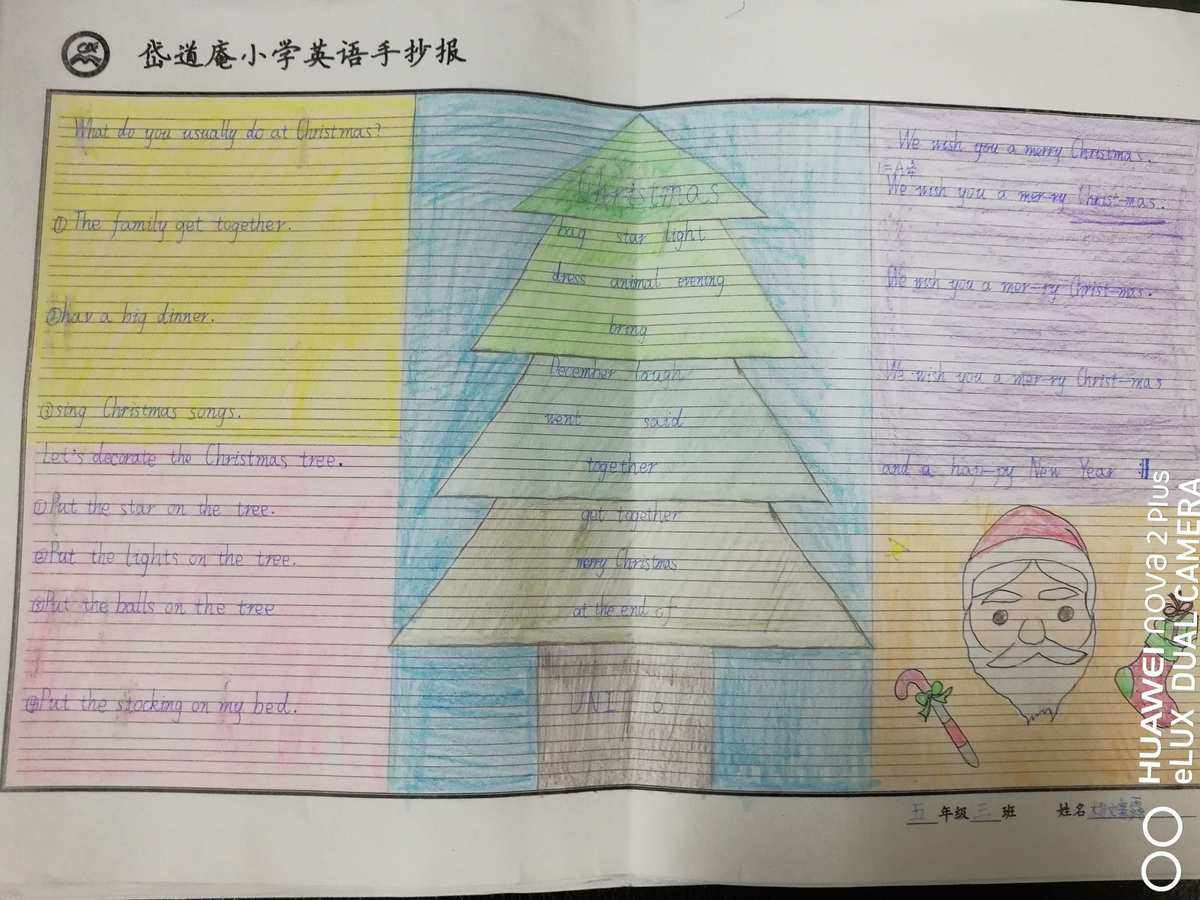 岱道庵小学英语手抄报
What do you usually do at Christmas?
①The family get together.
②hav a big dinner.
③sing Christmas songs.
Let's decorate the Christmas tree.
①Put the star on the tree.
②Put the lights on the tree.
③Put the balls on the tree
④Put the stocking on my bed.
Christmas
bag star light
dress animal evening
bring
December laugh
went said
together
get together
merry Christmas
at the end of
We wish you a merry Christmas.
We wish you a mer-ry Christ-mas.
We wish you a mer-ry Christ-mas.
We wish you a mer-ry Christ-mas
and a hap-py New Year
五年级三班 姓名
HUAWEI nova 2 Plus
eLUX DUAL CAMERA